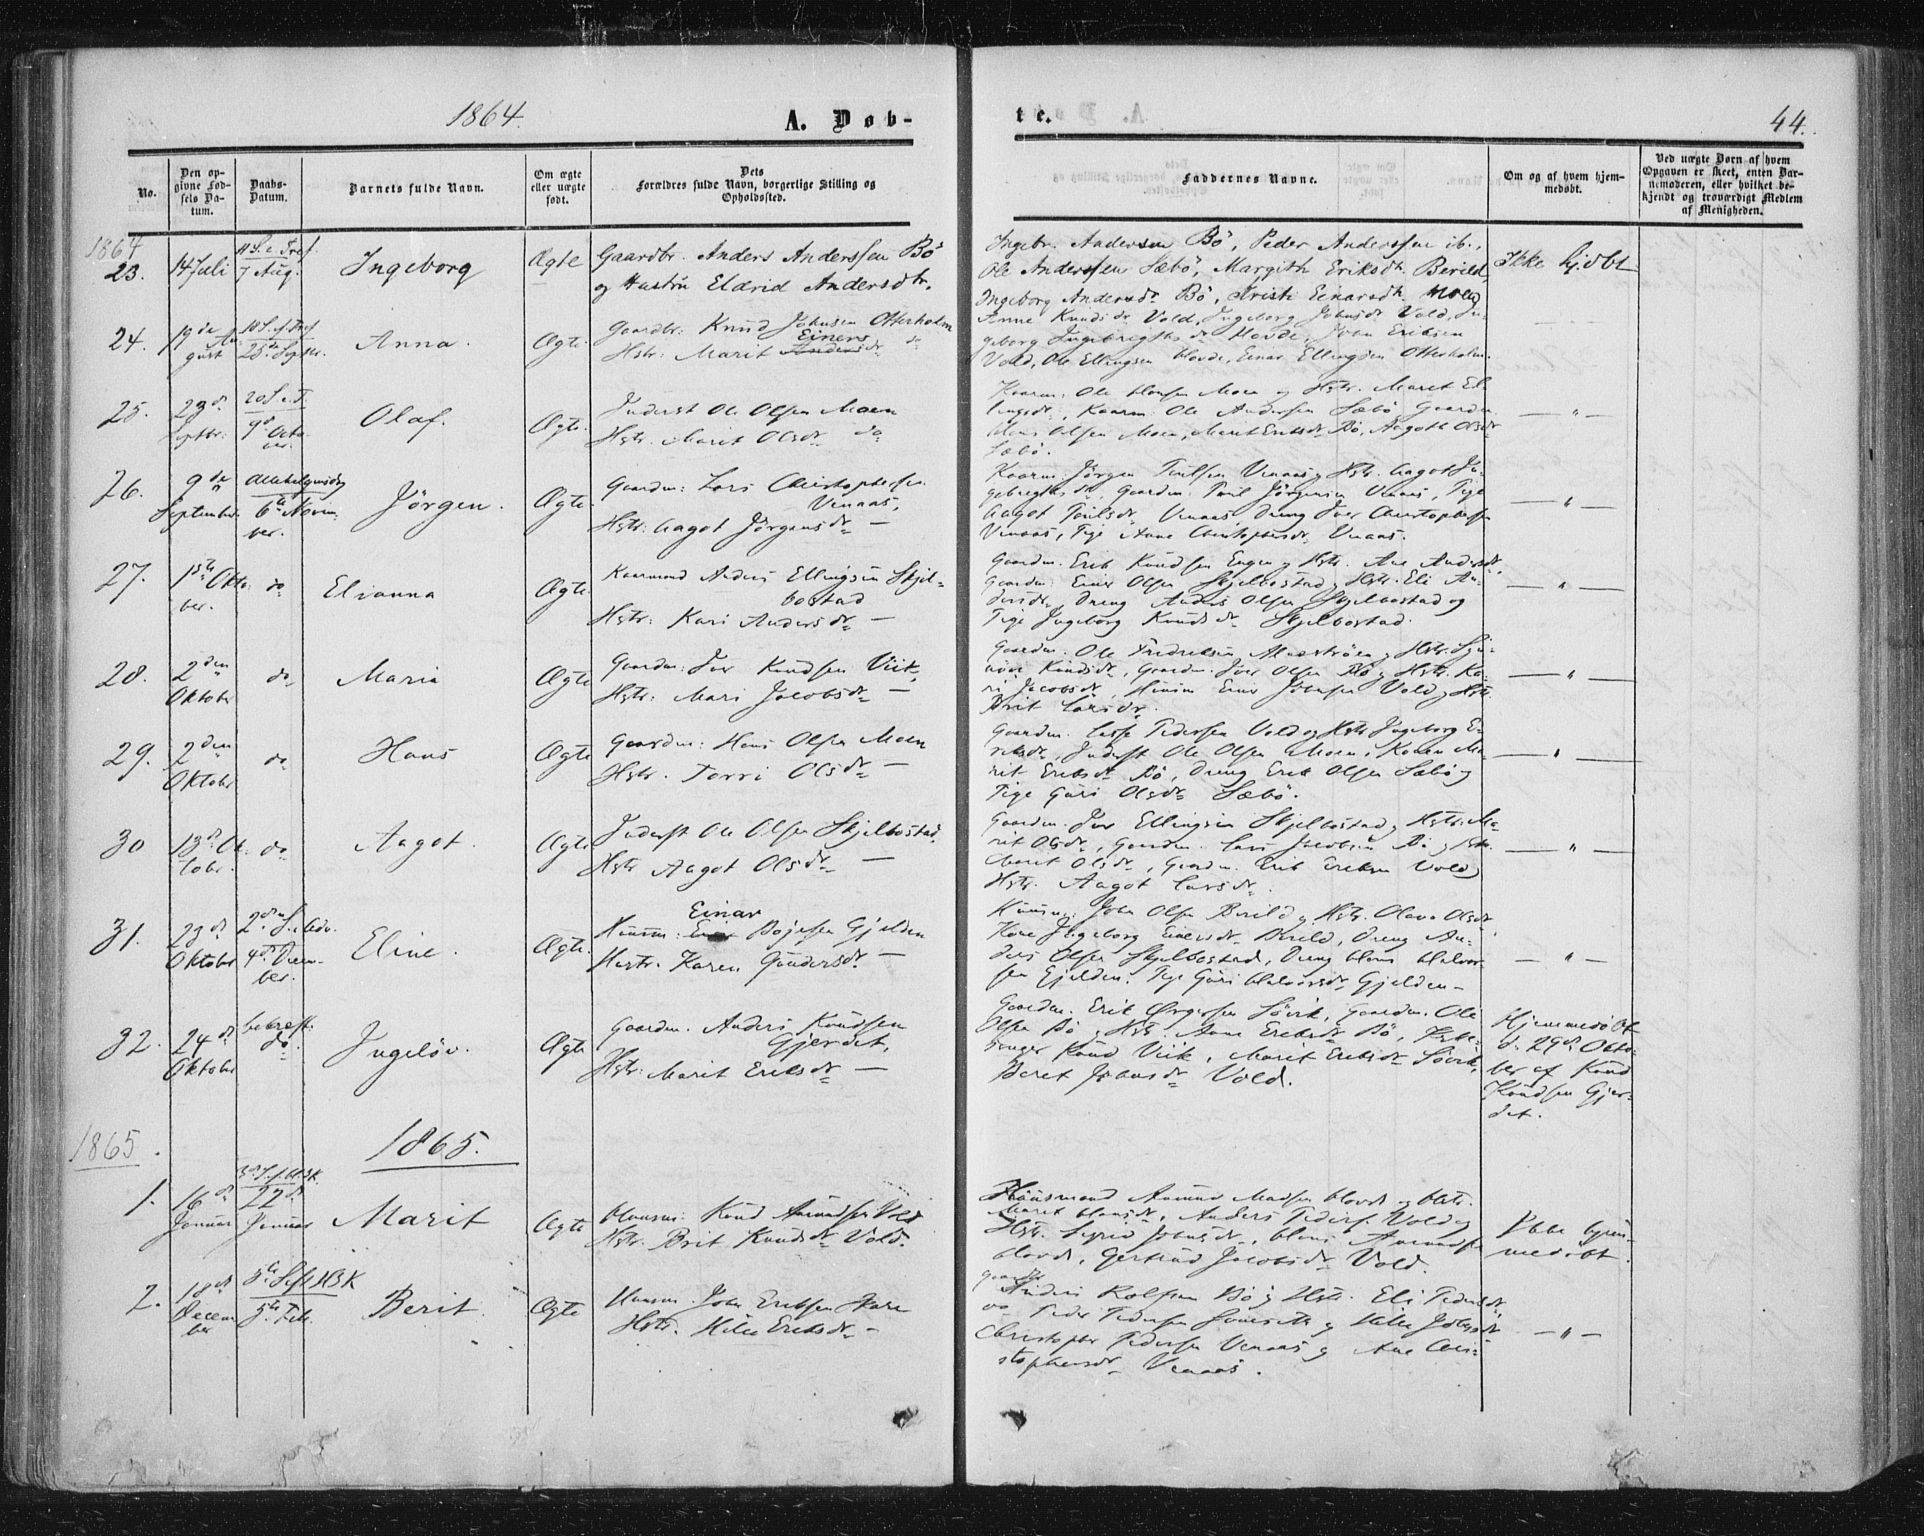 1864.
A. Døb-
te.
44.
No.
Den op-
givne Fød-
sels Da-
tum.
Daabs-
Datum.
Barnets fulde Navn.
Om ægte
eller uægte
født.
Dets
Forældres fulde Navn, borgerlige Stilling og
Opholdssted.
Faddernes Navne.
Om og af hvem hjem-
medøbt.
Ved uægte Børn af hvem
Opgaven er skeet, enten Bar-
nemoderen, eller hvilket be-
kjendt og troværdigt Medlem
af Menigheden.
1864
23.
14 Juli
11 S. e. Tref.
7 Aug.
Ingeborg
Ægte
Gaardbr. Anders Anderssen Bö
og Hustru Eldrid Andersdtr.
Ingebr. Andersen Bö, Peder Anderssen ib.,
Ole Anderssen Sæbö, Margith Eriksdt. Berild,
Ingeborg Andersdr Bö, Kristi Einarsdt. Moen
Ikke hjdbt
24.
19de Au-
gust
18 S. e. Tref
25de Septr.
Anna.
Ægte.
Gaardbr: Knud Johnsen Otterholm
Einers
Hstr: Marit Andersdr do
Anne Knudsdr Vold, Ingeborg Johnsdr Vold, In-
geborg Ingebrigtsdr Hovde, John Eriksen
Vold, Ole Ellingsen Hovde, Einar Ellingsen Otterholm.
25.
23d
Septbr.
20 S. e. T.
9d Octo-
ber.
Olaf.
Ægte.
Inderst Ole Olsen Moen
Hstr. Marit Olsdr do
Kaarm: Ole Hansen Moen og Hstr. Maret El-
lingsdr, Kaarm: Ole Andersen Sæbö, Gaardm.
Hans Olsen Moen, Marit Eriksdr Bö, Aagot Olsdr
Sæbö.
— " —
26.
9de
September
Allehelgensdag
6te Novem-
ber.
Jörgen.
Ægte.
Gaardm: Lars Christophersen
Venaas,
Hstr: Aagot Jörgensdr —
Kaarm. Jörgen Toulsen Venaas og Hstr. Aagot In-
gebrigtsdr, Gaardm. Jörgensen Venaas, Pige
Aagot Venaas, Dreng Iver Christophersen
Venaas, Pige Anne Christophersdr Venaas.
— " —
27.
1ste Okto-
ber.
do
Elianna
Ægte.
Kaarmand Anders Ellingsen Skjel-
bostad
Hstr: Kari Andersdr —
Gaardm. Erik Knudsen Engen og Hstr. Ane Andersdr,
Gaardm: Einer Olsen Skjelbostad og Hstr. Eli An-
dersdr, Dreng Anders Olsen Skjelbostad og
Pige Ingeborg Knudsdr Skjelbostad.
— " —
28.
2den
Oktober
do,
Maria
Ægte
Gaardm: Iver Knudsen Viik,
Hstr: Mari Jacobsdr —
Gaardm. Ole Fredriksen og Hstr. Syn-
növe Knudsdr, Gaardm. Iver Olsen Bö og Hstr. Ka-
ri Jacobsdr, Einer Johnsen Vold og Hstr.
Brit Larsdr.
— " —
29.
2den
Oktober
do
Hans
Ægte
Gaardm: Hans Olsen Moen
Hstr. Torri Olsdr —
Gaardm. Lasse Pedersen Vold og Hstr Ingeborg E-
riksdr, Inderst Ole Olsen Moen, Konen Ma-
rit Eriksdr Bö, Dreng Erik Olsen Sæbö og
Pige Guri Olsdr Sæbö.
— " —
30
13d Ok-
tobr.
do
Aagot.
Ægte
Inderst Ole Olsen Skjelbostad.
Hstr Aagot Olsdr —
Gaardm. Iver Ellingsen Skjelbostad og Hstr. Ma-
rit Olsdr, Gaardm. Lars Jacobsen Bö og Hstr.
Marit Olsdr, Gaardm. Erik Eriksen Vold og
Hstr. Aagot Larsdr.
— " —
31.
23d
Oktober
2den S. i Adv.
4d Decem-
ber.
Eline.
Ægte.
Einar
Huusm: Bojesen Gjelden
Hustr. Karen Gundersdr. —
Huusm. John Olsen Berild og Hstr. Olava Olsdr
Kone Ingeborg Einersdr Berild, Dreng An-
ders Olsen Skjelbostad, Dreng Hans Halvor-
sen Gjelden. Pige Guri Halvorsdr Gjelden —
— " —
32.
24d
Oktober
bekræft.
do.
Ingelöv.
Ægte
Gaardm. Anders Knudsen
Gjerdet,
Hstr: Marit Eriksdr —
Gaardm. Erik Sövik, Gaardm. Ole
Olsen Bö og Hstr. Anne Eriksdr Bö, Kirke-
sanger Knud Viik, Marit Eriksdr Sövik,
Beret Johnsdr Vold.
Hjemmedöbt
d. 29d Okto-
ber af Knud
Knudsen Gjer-
det.
1865.
1865.
1.
16d
Januar
3d S. e. H3K.
22d
Januar
Marit
Ægte
Huusm: Knud Amundsen Vold
Hstr. Brit Knudsdr Vold.
Huusmand Amund Madsen Hovde og Hstr.
Marit Hansdr, Anders Peders. Vold og
Hstr. Sigrid Johnsdr, Hans Amundsen
Hovde, Gertrud Jacobsdr Vold.
Ikke hjem-
medöbt.
2.
18d
Decem-
ber
5te S. e. H3K
5te Feb.
Berit.
Ægte
Huusm. John Eriksen
Hstr. Eriksdr —
Gaardbr
Anders Bö og Hstr. Eli Pedersdr
Peder Pedersen og
Christopher Pedersen Venaas og Ane Chri-
stophersdr Venaas.
— " —